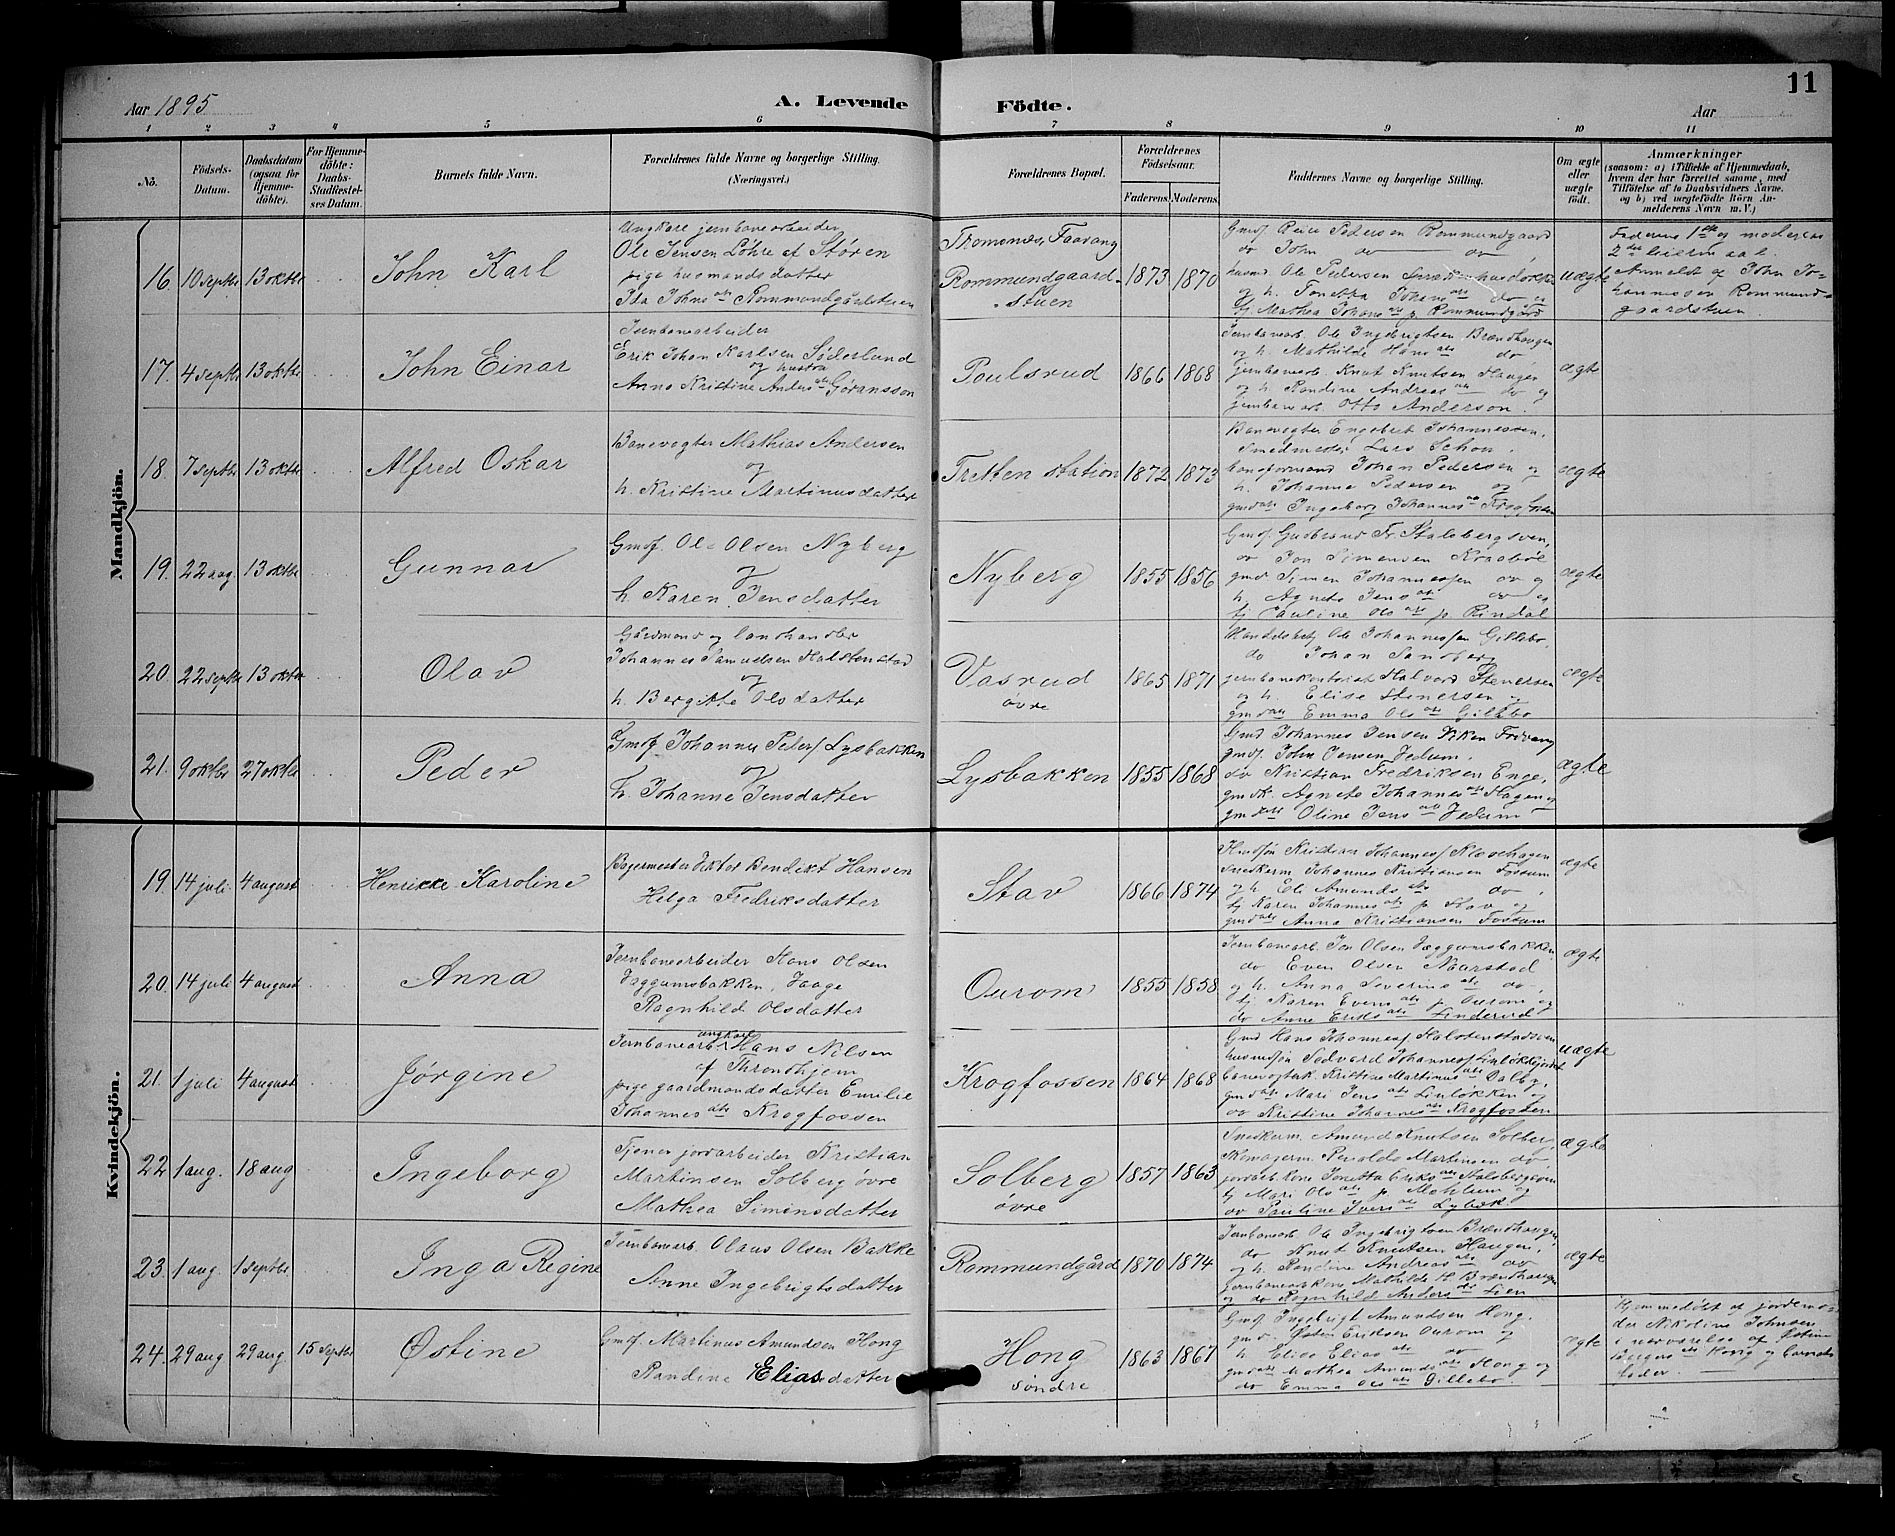 Aar 1895
A. Levende
Födte.
Aar
11
1 2 3 4 5 6 7 8 9 10 11
No.
Födsels-Datum.
Daabsdatum (ogsaa for Hjemme-döbte).
For Hjemme-döbte: Daabs-Stadfæstel-ses Datum.
Barnets fulde Navn.
Forældrenes fulde Navne og borgerlige Stilling. (Næringsvei.)
Forældrenes Bopæl.
Forældrenes Födselsaar.
Faderens Moderens
Faddernes Navne og borgerlige Stilling.
Om ægte eller uægte födt.
Anmærkninger
(saasom: a) i Tilfælde af Hjemmedaab, hvem der har forrettet samme, med Tilföielse af to Daabsvidners Navne. og b) ved uægtefödte Börn An-melderens Navn m. V.)
Mandkjön.
16. 10 septbr 13 oktbr John Karl
Ungkarl jernbanearbeider
Ole Jensen Löhre af Stören
pige husmandsdatter
Ida Johns dtr Rommundgaardstuen
Tromsnes, Faavang
Rommundgaard-
stuen
1873 1870
Pedersen Rommundgaard
do John do do
husmd. Ole Pedersen
og h. Tonetta Johans dtr do og
Mathea Johans dtr p Rommundgård
uægte
Faderens 1ste og moderens
2det leiermaal.
Anmeldt af John Jo-
hannessen Rommund-
gaardstuen
17. 4 septbr 13 oktbr John Einar
Jernbanearbeider
Erik Johan Karlsen Söderlund
og hustru
Anna Kristine Anders dtr Göransson
Poulsrud 1866 1868
Jernbanearb. Ole Ingebrigtsen Brændhaugen
og h. Mathilde Hans dtr do
jernbanearb. Knut Knutsen Haugen
og h. Randine Andreas dtr do og
jernbanearb. Otto Anderson.
ægte
18. 7 septbr 13 oktbr Alfred Oskar
Banevogter Mathias Andersen
og
h. Kristine Martinusdatter
Tretten station 1872 1873
Banevogter Engebret Johannessen,
Smedmester Lars Schou,
baneformand Johan Pedersen og
h. Johanne Pedersen og
gmd dtr Ingeborg Johannes dtr Krogfossen
ægte
19. 22 aug. 13 oktbr Gunnar
Gmsf. Ole Olsen Nyberg
og
h. Karen Jensdatter
Nyberg 1855 1856
Gmsf. Gudbrand Fr. Stalsbergsveen,
do Jon Simensen Kraaböl
gmd. Simen Johannessen do og
h. Agnete Jens dtr do og
tj Pauline Ols dtr p Rindal
ægte
20. 22 septbr 13 oktbr Olav
Gårdmand og landhandler
Johannes Samuelsen Halstenstad
og
h. Bergitte Olsdatter
Vasrud
övre
1865 1871
Handelsbetj Ole Johannessen Gillebo,
do Johan Sandberg
jernbanekontorist Halvard Stenersen
og h. Elise Stenersen og
gmd dtr Emma Ols dtr Gillebo
ægte
21. 9 oktbr 27 oktbr Peder
Gmsf. Johannes Peders. Lysbakken
og
h. Johanne Jensdatter
Lysbakken 1855 1868
Gmd Johannes Jensen
gmsf. John Jensen Jedum,
do Kristian Fredriksen Enge,
gmdk. Agnete Johannes dtr Hagen og
gmd dtr Oline Jens dtr Jedum
ægte
Kvindekjön.
19. 14 juli 4 august Henrikke Karoline
Bagermester Viktor Bendikt Hansen
Helga Fredriksdatter
Stav 1866 1874
Kristian Johannes.
Snedkerm. Johannes Kristiansen Fossum
og h. Eli Amunds dtr do,
tj Karen Johannes dtr p Stav og
gmd dtr Anna Kristiansen Fossum
ægte
20. 14 juli 4 august Anna
Jernbanearbeider Hans Olsen
Jaggumsbakken, Vaage
Ragnhild Olsdatter
Ourom 1855 1858
Jernbanearb. Jon Olsen Jæggumsbakken
do Even Olsen Naarstad
og h. Anna Severins dtr do,
tj. Karen Evens dtr p Ourom og
do Anne Eriks dtr Linderud
ægte
21. 1 juli 4 august Jörgine
Jernbanearb. ungkarl Hans Nilsen
af Throndhjem
pige gaardmandsdatter Emilie
Johannes dtr Krogfossen
Krogfossen 1864 1868
Gmd Hans Johannes. Halstenstadsveen
husmdsön Sedvard Johannes.
banevogterk. Kristine Martinus dtr Dalby,
gmd dtr Mari Jens dtr Linlökken og
do Kristine Johannes dtr Krogfossen
uægte
22. 1 aug. 18 aug Ingeborg
Tjener jordarbeider Kristian
Martinsen Solberg övre
Mathea Simensdatter
Solberg
övre
1857 1863
Snedkerm. Amund Knutsen Solberg,
Skomagerm. Martinsen do,
jordarb. kone Jonetta Eriks dtr Stalsbergsveen
tj Mari Ols dtr p og
do Pauline Ivers dtr
ægte
23. 1 aug. 1 septbr Inga Regine
Jernbanearb. Olaus Olsen Bakke
Anne Ingebrigtsdatter
Rommundgård 1870 1874
Jernbanearb Ole Ingebrigtsen Brændhaugen,
do Knut Knutsen Haugen,
og h. Randine Andreas dtr do
jernbanearb.kone Mathilde H. Brændhaugen
og do Ragnhild Anders dtr Lien
ægte
24. 29 aug 29 aug. 15 septbr Östine
Gmsf. Martinus Amundsen Hong
Randine Eliasdatter
Hong
söndre
1863 1867
Gmsf. Ingebrigt Amundsen Hong,
gmd. Östen Eriksen Ourom og
h. Elise Elias dtr do
gmd dtr Mathea Amunds dtr Hong og
do Emma Ols dtr Gillebo.
ægte
Hjemmedöbt af jordemo-
der Nikoline Johnsen
i nærværelse af Östine
dtr Hong og barnets
fader.